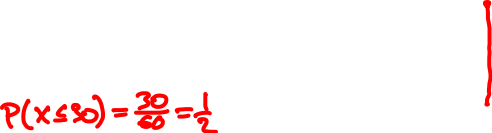 P(X≤30) = 30/60 = 1/2